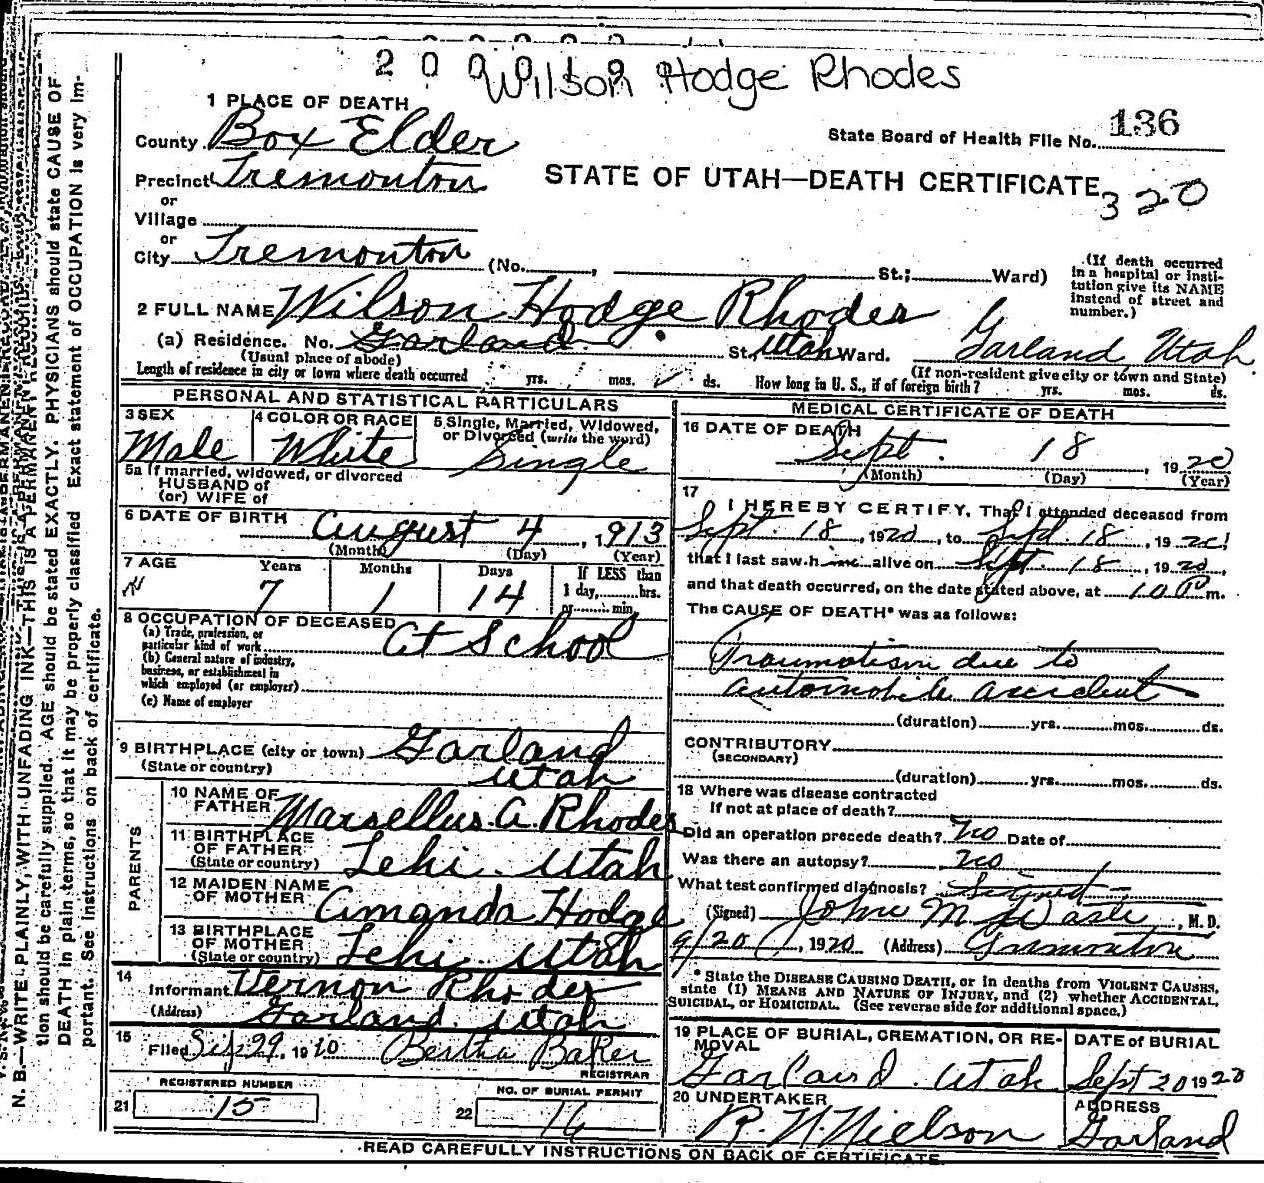 2 0 0 0 1 0 0
Wilson Hodge Rhodes
1 PLACE OF DEATH
County Box Elder
State Board of Health File No. 136
Precinct Tremonton
STATE OF UTAH—DEATH CERTIFICATE
320
or
Village
or
City Tremonton (No. , St.; Ward)
(If death occurred in a hospital or insti-
tution give its NAME
instead of street and
number.)
2 FULL NAME Wilson Hodge Rhodes
(a) Residence. No. Garland St. Utah Ward. Garland Utah
(Usual place of abode) (If non-resident give city or town and State)
Length of residence in city or town where death occurred yrs. mos. ds. How long in U. S., if of foreign birth? yrs. mos. ds.
PERSONAL AND STATISTICAL PARTICULARS
3 SEX Male
4 COLOR OR RACE White
5 Single, Married, Widowed,
or Divorced (write the word)
Single
5a If married, widowed, or divorced
HUSBAND of
(or) WIFE of
6 DATE OF BIRTH August 4, 1913
(Month) (Day) (Year)
7 AGE Years Months Days If LESS than
7 1 14 1 day, hrs.
or min.
8 OCCUPATION OF DECEASED
(a) Trade, profession, or
particular kind of work At School
(b) General nature of industry,
business, or establishment in
which employed (or employer)
(c) Name of employer
9 BIRTHPLACE (city or town) Garland
(State or country) Utah
PARENTS
10 NAME OF
FATHER Marsellus A. Rhodes
11 BIRTHPLACE
OF FATHER
(State or country) Lehi Utah
12 MAIDEN NAME
OF MOTHER Amanda Hodge
13 BIRTHPLACE
OF MOTHER
(State or country) Lehi Utah
14
Informant Vernon Rhodes
(Address) Garland Utah
15
Filed Sep 29, 1920 Bertha Baker
REGISTRAR
REGISTERED NUMBER
21 15
NO. OF BURIAL PERMIT
22 16
MEDICAL CERTIFICATE OF DEATH
16 DATE OF DEATH
Sept. 18, 1920
(Month) (Day) (Year)
17
I HEREBY CERTIFY, That I attended deceased from
Sept. 18, 1920, to Sept. 18, 1920
that I last saw him alive on Sept. 18, 1920,
and that death occurred, on the date stated above, at 10 P m.
The CAUSE OF DEATH* was as follows:
Traumatism due to
automobile accident
(duration) yrs. mos. ds.
CONTRIBUTORY
(SECONDARY)
(duration) yrs. mos. ds.
18 Where was disease contracted
If not at place of death?
Did an operation precede death? No Date of
Was there an autopsy? no
What test confirmed diagnosis?
(Signed) John M , M. D.
9/20, 1920 (Address) Tremonton
* State the DISEASE CAUSING DEATH, or in deaths from VIOLENT CAUSES,
state (1) MEANS AND NATURE OF INJURY, and (2) whether ACCIDENTAL,
SUICIDAL, or HOMICIDAL. (See reverse side for additional space.)
19 PLACE OF BURIAL, CREMATION, OR RE-
MOVAL
Garland Utah
DATE of BURIAL
Sept 20 1920
20 UNDERTAKER
R. N. Nielson
ADDRESS
Garland
READ CAREFULLY INSTRUCTIONS ON BACK OF CERTIFICATE.
N. B.—WRITE PLAINLY, WITH UNFADING INK—THIS IS A PERMANENT RECORD.
tion should be carefully supplied. AGE should be stated EXACTLY. PHYSICIANS should state CAUSE OF
DEATH in plain terms, so that it may be properly classified Exact statement of OCCUPATION is very im-
portant. See instructions on back of certificate.